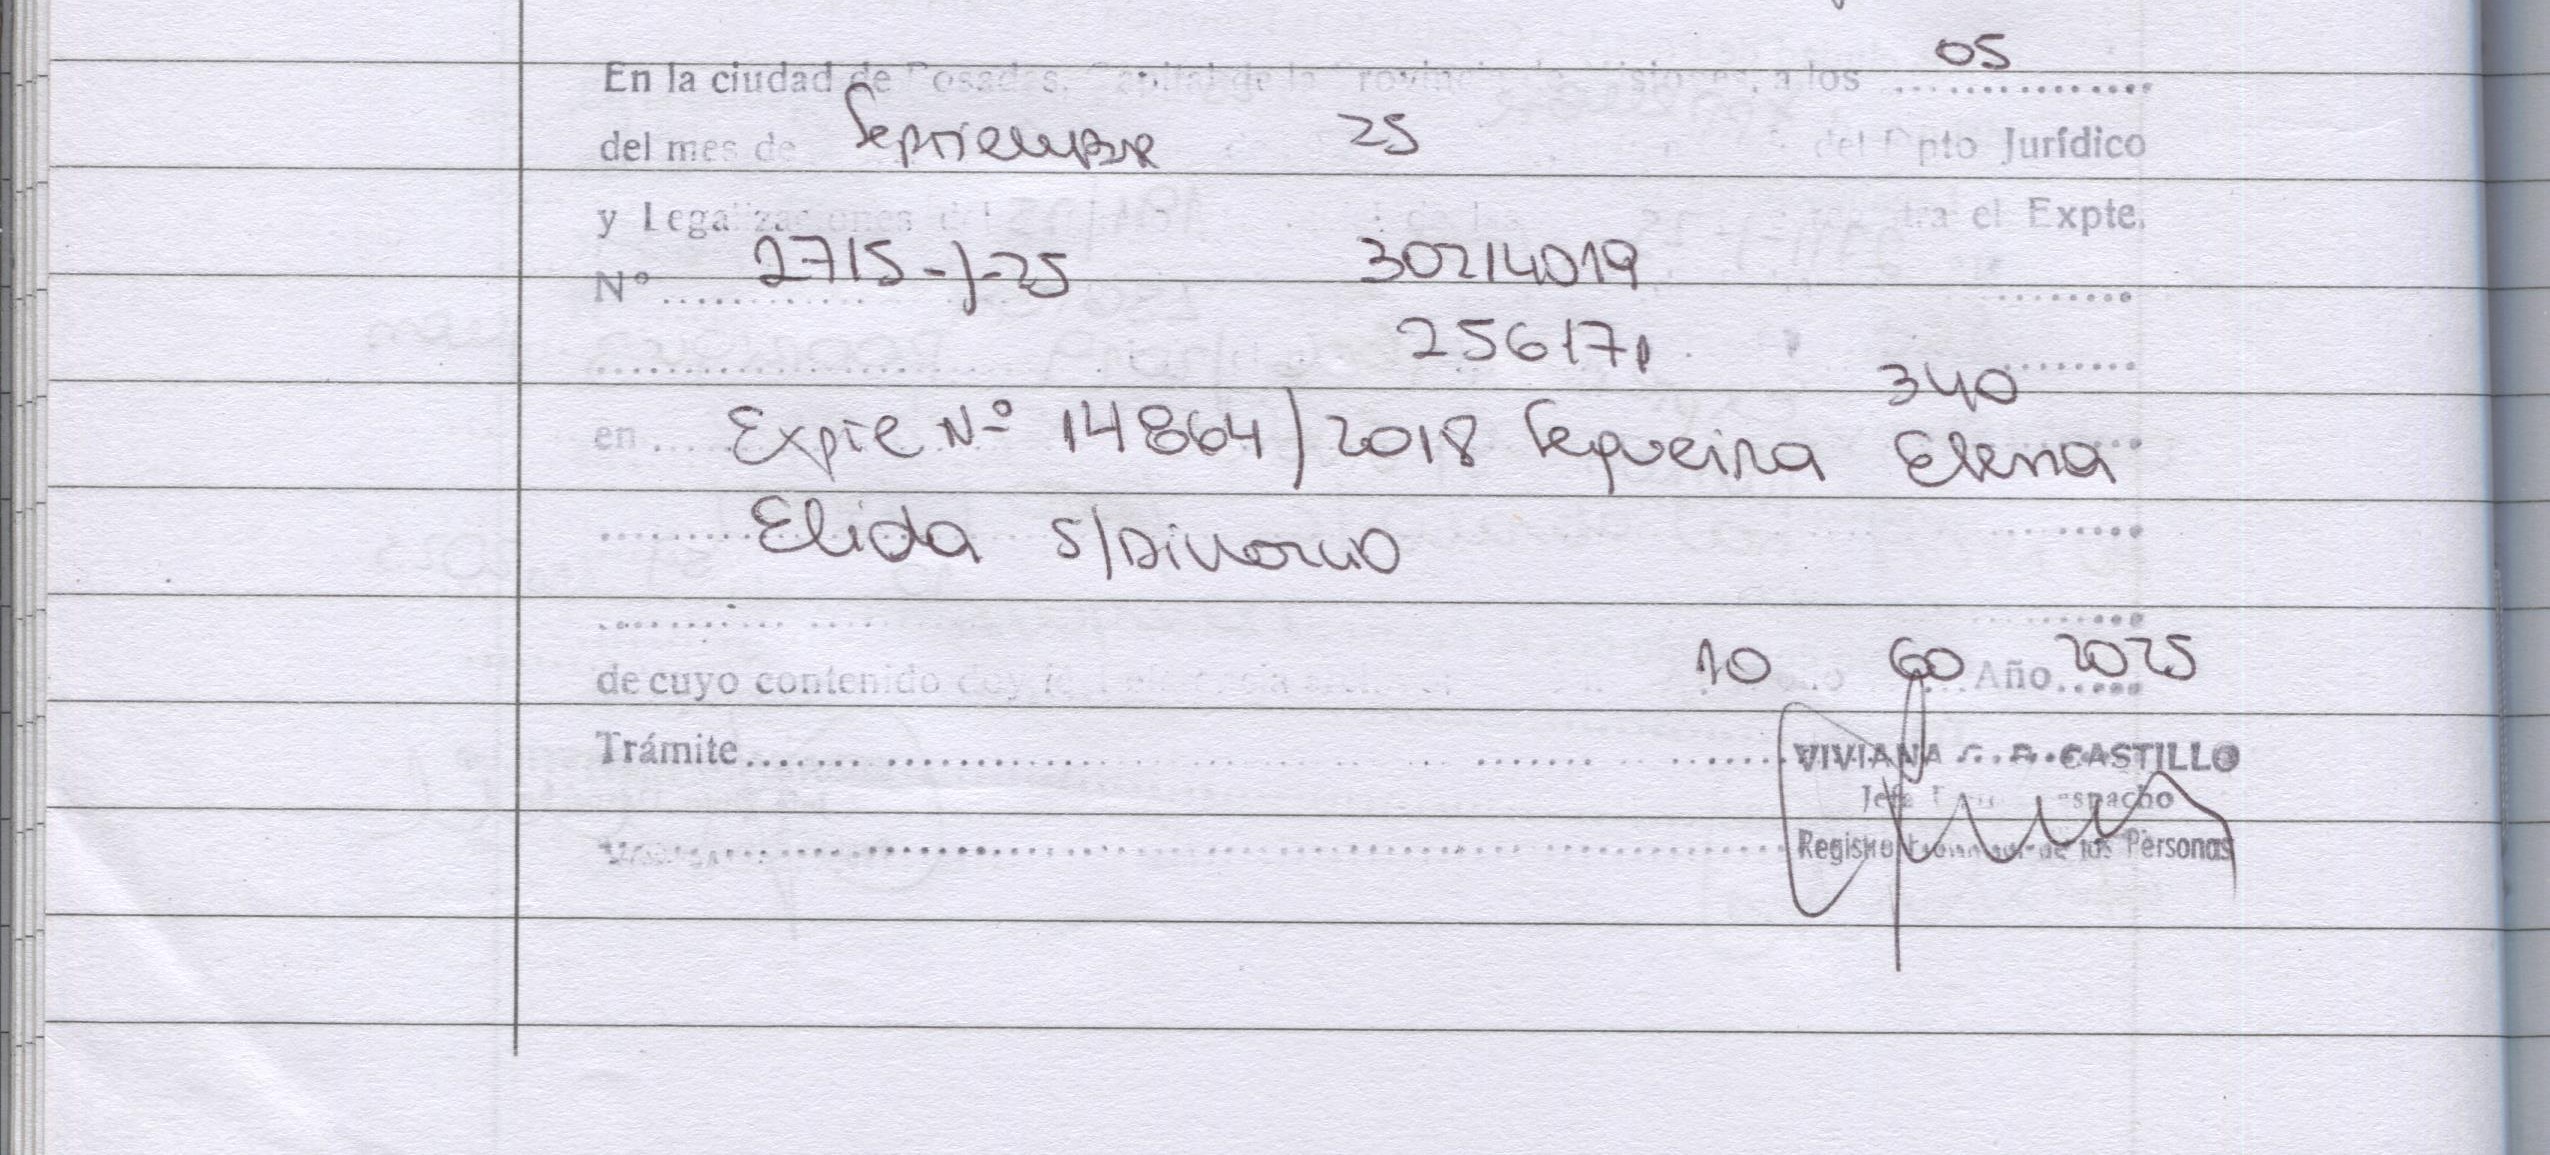 05
En la ciudad de Posadas, Capital de la Provincia de Misiones, a los ................
del mes de Septiembre 25 del Dpto Jurídico
y Legalizaciones del de las registra el Expte.
Nº 2715-J-25 30214019
256171
340
en Expte Nº 14864/2018 Sequeira Elena
Elida S/Divorcio
de cuyo contenido doy fe 10 60 Año 2025
Trámite
VIVIANA CASTILLO
Jefe Despacho
Registro Provincial de las Personas